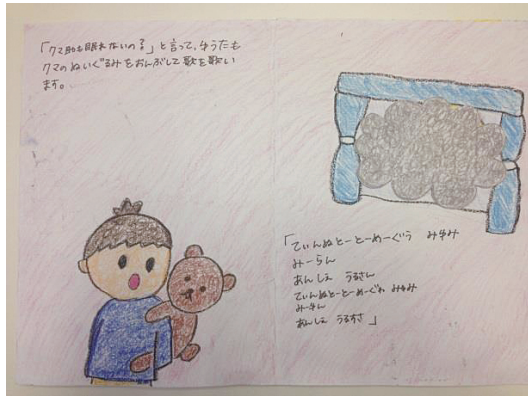 「クマ助も眠れないの？」と言って、ゆうたも
クマのぬいぐるみをおんぶして歌を歌い
ます。
「てぃんぬとーとーめーぐゎ
みーらん
あんしぇ うるさん
てぃんぬとーとーめーぐゎ
みーらん
あんしぇ うるすさ」